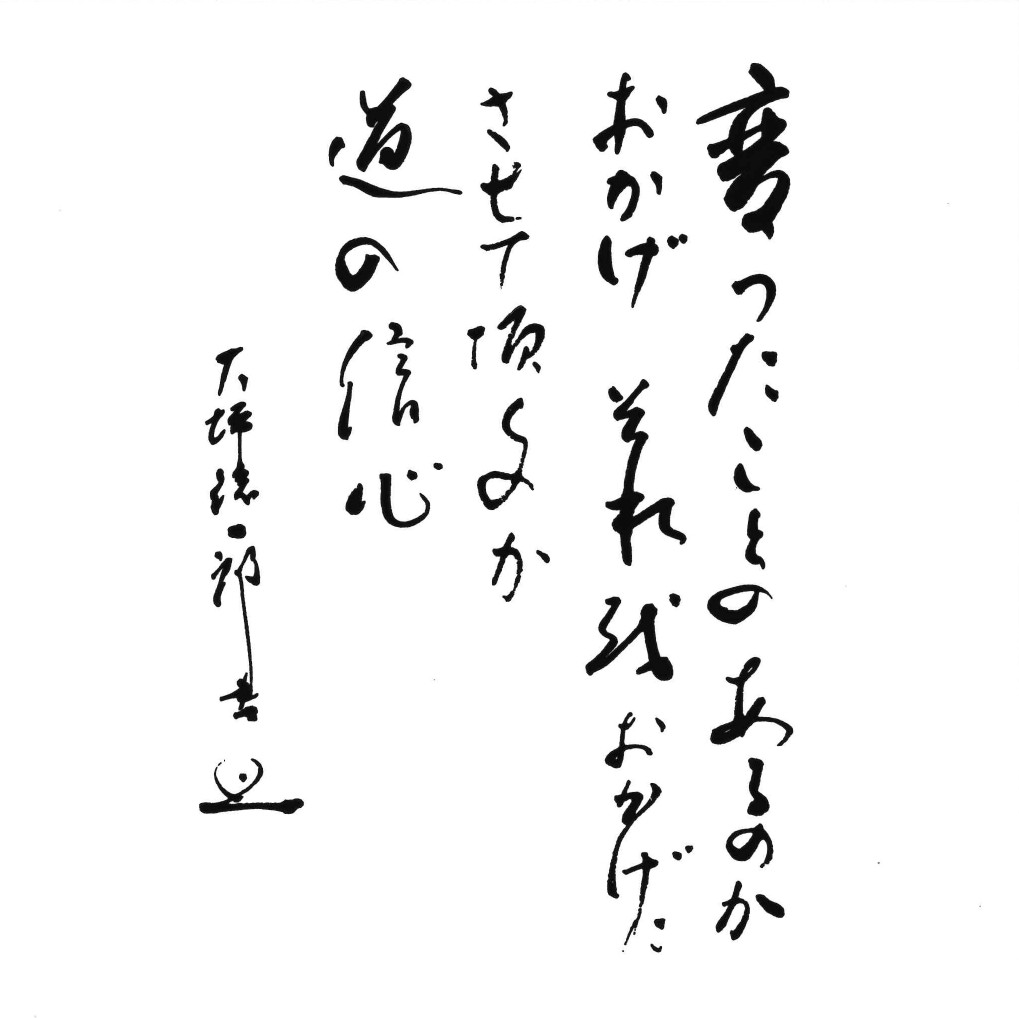 変ったことのあるのが
おかげ それをおかげに
させて頂くのか
道の信心
大坪総一郎書